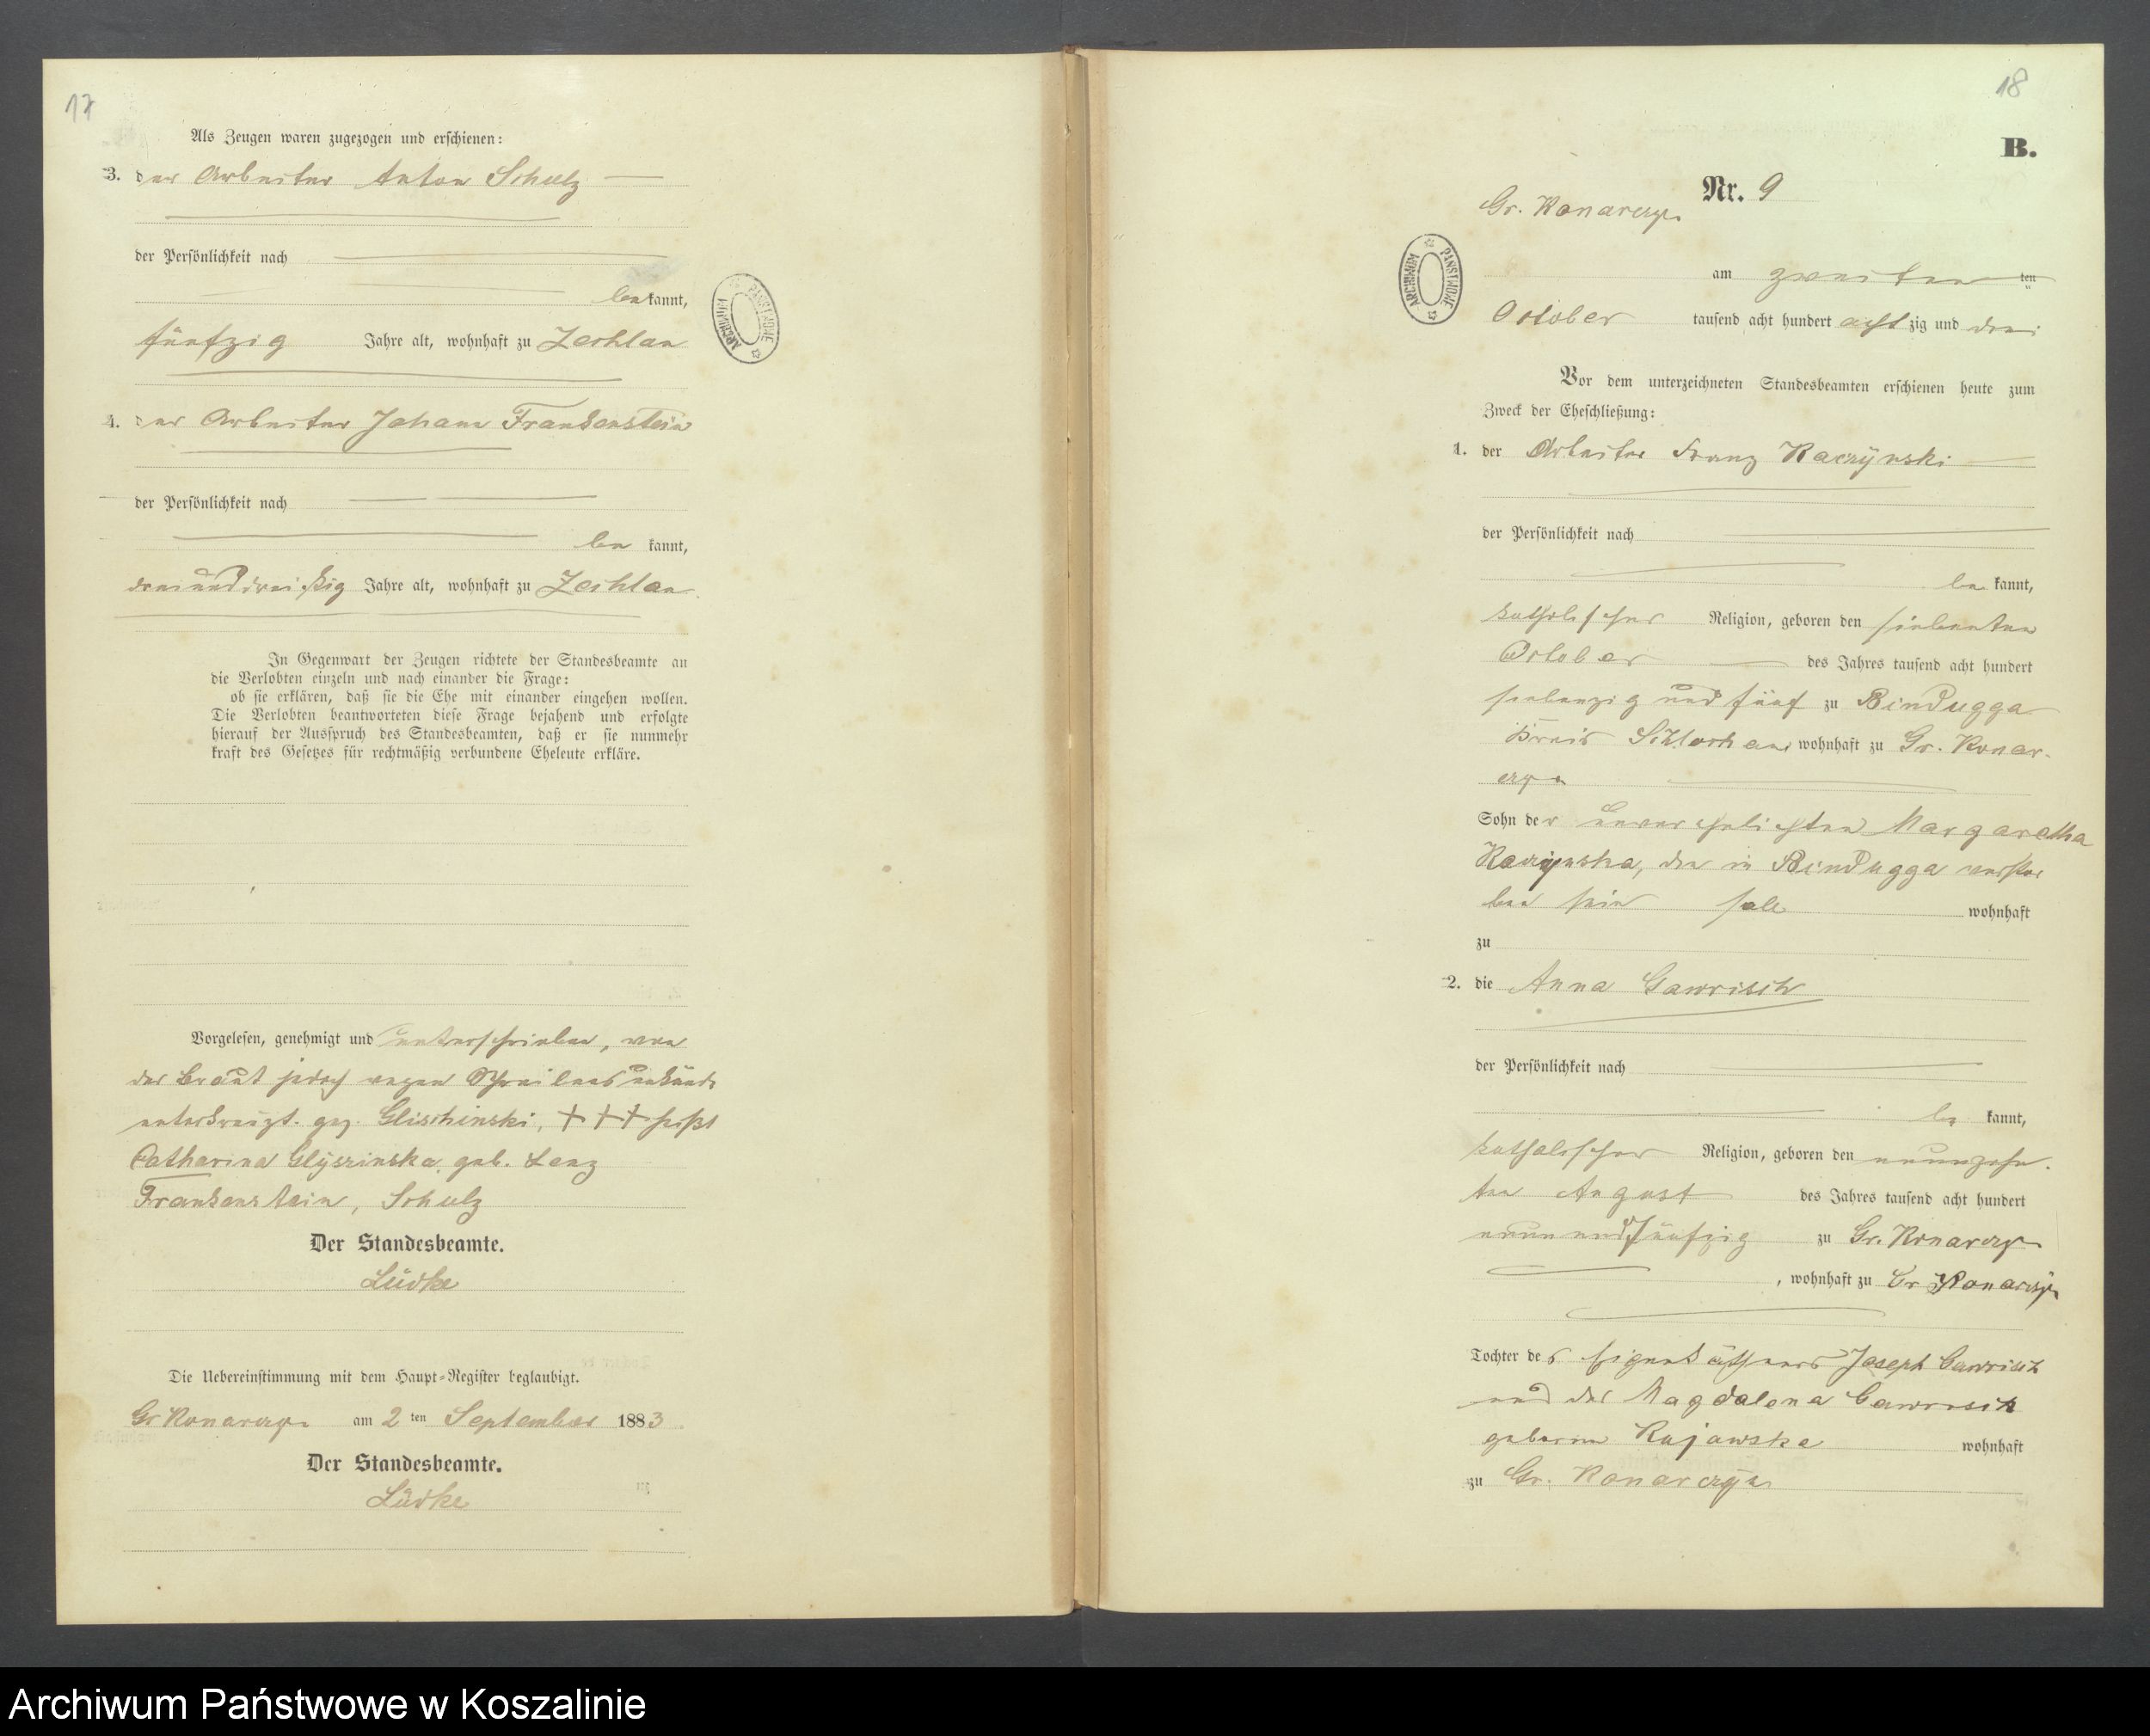 17
Als Zeugen waren zugezogen und erschienen:
3. der Arbeiter Anton Schulz
der Persönlichkeit nach
bekannt,
fünfzig Jahre alt, wohnhaft zu Zechlau
4. der Arbeiter Johann Frankenstein
der Persönlichkeit nach
be kannt,
dreiunddreißig Jahre alt, wohnhaft zu Zechlau
In Gegenwart der Zeugen richtete der Standesbeamte an
die Verlobten einzeln und nach einander die Frage:
ob sie erklären, daß sie die Ehe mit einander eingehen wollen.
Die Verlobten beantworteten diese Frage bejahend und erfolgte
hierauf der Ausspruch des Standesbeamten, daß er sie nunmehr
kraft des Gesetzes für rechtmäßig verbundene Eheleute erkläre.
Vorgelesen, genehmigt und unterschrieben, von
der Braut jedoch wegen Schreibensunkunde
unterkreuzt. gez. Glischinski, +++ heißt
Catharina Glyszinska, geb. Lenz
Frankenstein, Schulz
Der Standesbeamte.
Lüdke
Die Uebereinstimmung mit dem Haupt-Register beglaubigt.
Gr Konarczyn am 2 ten September 1883
Der Standesbeamte.
Lüdke
ARCHIWUM PAŃSTWOWE
18
B.
Nr. 9
Gr. Konarczyn
am zweiten ten
October tausend acht hundert achtzig und drei
Vor dem unterzeichneten Standesbeamten erschienen heute zum
Zweck der Eheschließung:
1. der Arbeiter Franz Raczÿnski
der Persönlichkeit nach
be kannt,
katholischer Religion, geboren den siebenten
October des Jahres tausend acht hundert
siebenzig und fünf zu Bindugga
Kreis Schlochau, wohnhaft zu Gr. Konar-
czyn
Sohn der unverehelichten Margaretha
Raczynska, die in Bindugga verstor
ben sein soll wohnhaft
zu
2. die Anna Gawrisch
der Persönlichkeit nach
be kannt,
katholischer Religion, geboren den neunzehn-
ten August des Jahres tausend acht hundert
neun und fünfzig zu Gr. Konarczyn
, wohnhaft zu Gr Konarczyn
Tochter des Eigenkäthners Joseph Gawrisch
und der Magdalena Gawrisch
geborne Kujawska wohnhaft
zu Gr. Konarczyn
ARCHIWUM PAŃSTWOWE
Archiwum Państwowe w Koszalinie